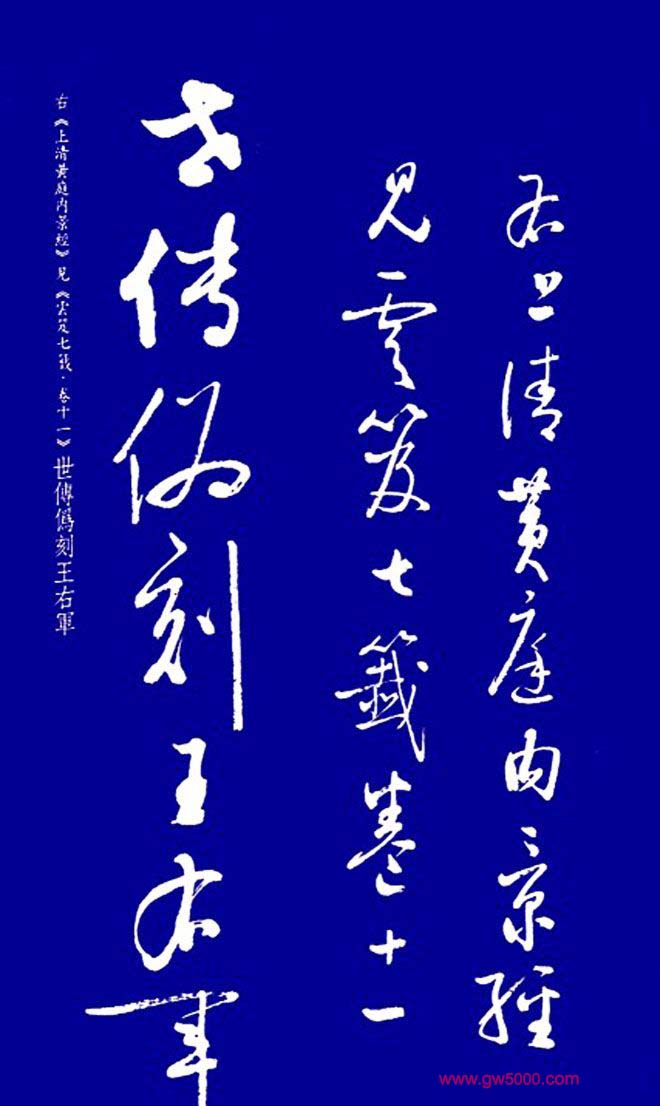 右上清黄庭内景經
見雲笈七籤卷十一
世傳偽刻王右軍
右《上清黄庭内景經》見《雲笈七籤·卷十一》世傳僞刻王右軍
www.gw5000.com